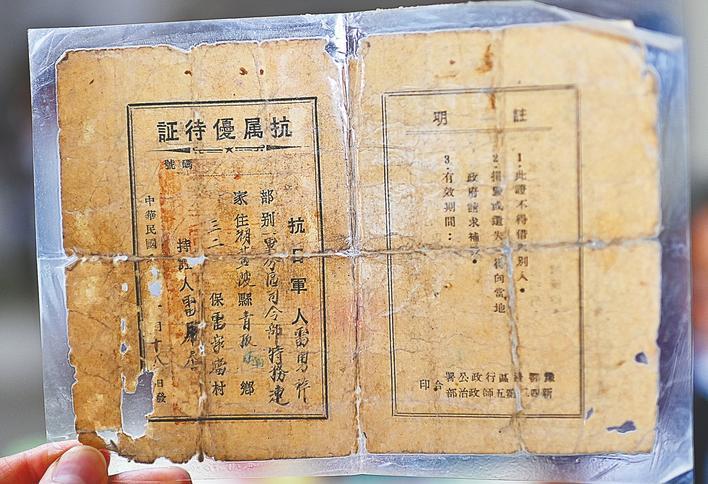 抗属優待証
碼號
抗日軍人雷勇
部别二軍分區司令部特務連
家住湖陂縣青板鄉
三二保雷家村
持證人雷
中華民國月十八日發
註明
1.此證不得借別人。
2.損毀或遺失向當地
政府請求補
3.有效期間：
豫鄂邊區行政公署
新四第五師政治部
合印